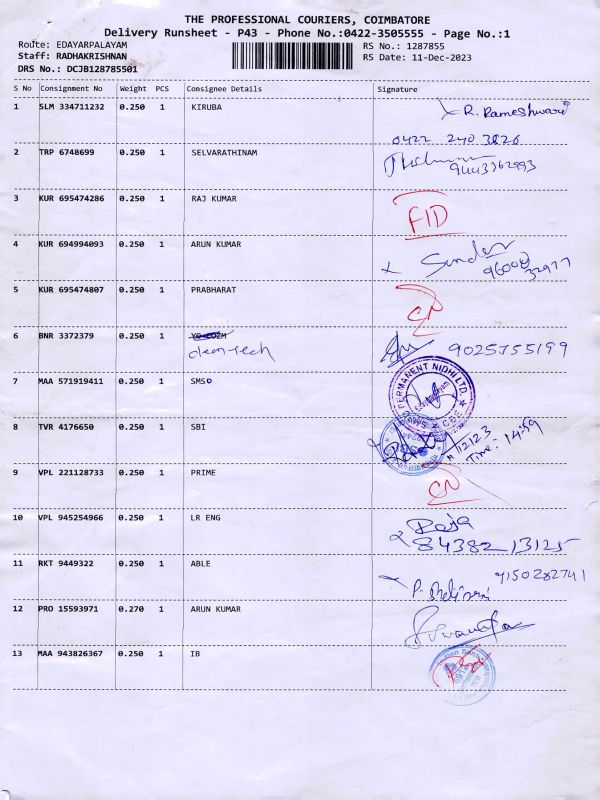 THE PROFESSIONAL COURIERS, COIMBATORE
Delivery Runsheet - P43 - Phone No.:0422-3505555 - Page No.:1
Route: EDAYARPALAYAM RS No.: 1287855
Staff: RADHAKRISHNAN RS Date: 11-Dec-2023
DRS No.: DCJB128785501
S No Consignment No Weight PCS Consignee Details Signature
1 SLM 334711232 0.250 1 KIRUBA R. Rameshwari
0422 240 3826
2 TRP 6748699 0.250 1 SELVARATHINAM
9443362993
3 KUR 695474286 0.250 1 RAJ KUMAR
FID
4 KUR 694994093 0.250 1 ARUN KUMAR Sundar
96000
32977
5 KUR 695474807 0.250 1 PRABHARAT
CN
6 BNR 3372379 0.250 1
deen-Tech 9025755199
7 MAA 571919411 0.250 1 SMS
PERMANENT NIDHI LTD.
CBE
8 TVR 4176650 0.250 1 SBI
11/12/23
Time: 14:59
9 VPL 221128733 0.250 1 PRIME
CN
10 VPL 945254966 0.250 1 LR ENG Raja
84382 13125
11 RKT 9449322 0.250 1 ABLE 9150282741
12 PRO 15593971 0.270 1 ARUN KUMAR
13 MAA 943826367 0.250 1 IB
Indian Bank